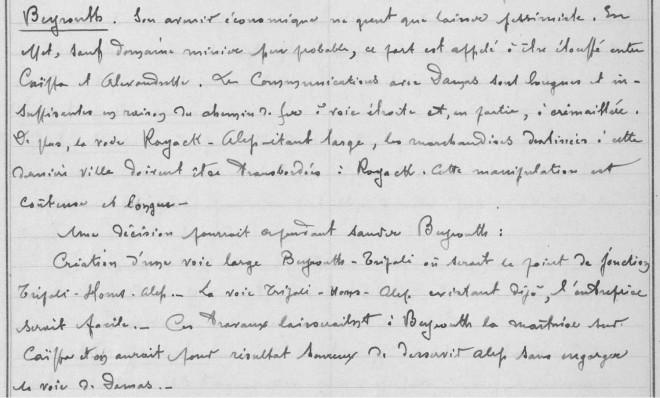 Beyrouth. Son avenir économique ne peut que laisser pessimiste. En
effet, sauf domaine minier peu probable, ce port est appelé à être étouffé entre
Caïffa et Alexandrette. Les Communications avec Damas sont longues et in-
suffisantes en raison du chemin de fer à voie étroite et, en partie, à crémaillère.
De plus, la voie Rayack-Alep étant large, les marchandises destinées à cette
dernière ville doivent être transbordées à Rayack. Cette manipulation est
coûteuse et longue -
Une décision pourrait cependant sauver Beyrouth :
Création d'une voie large Beyrouth-Tripoli où serait le point de jonction
Tripoli-Homs-Alep. - La voie Tripoli-Homs-Alep existant déjà, l'entreprise
serait facile. - Ces travaux laisseraient à Beyrouth la maîtrise sur
Caïffa et on aurait pour résultat heureux de desservir Alep sans engorger
la voie de Damas. -